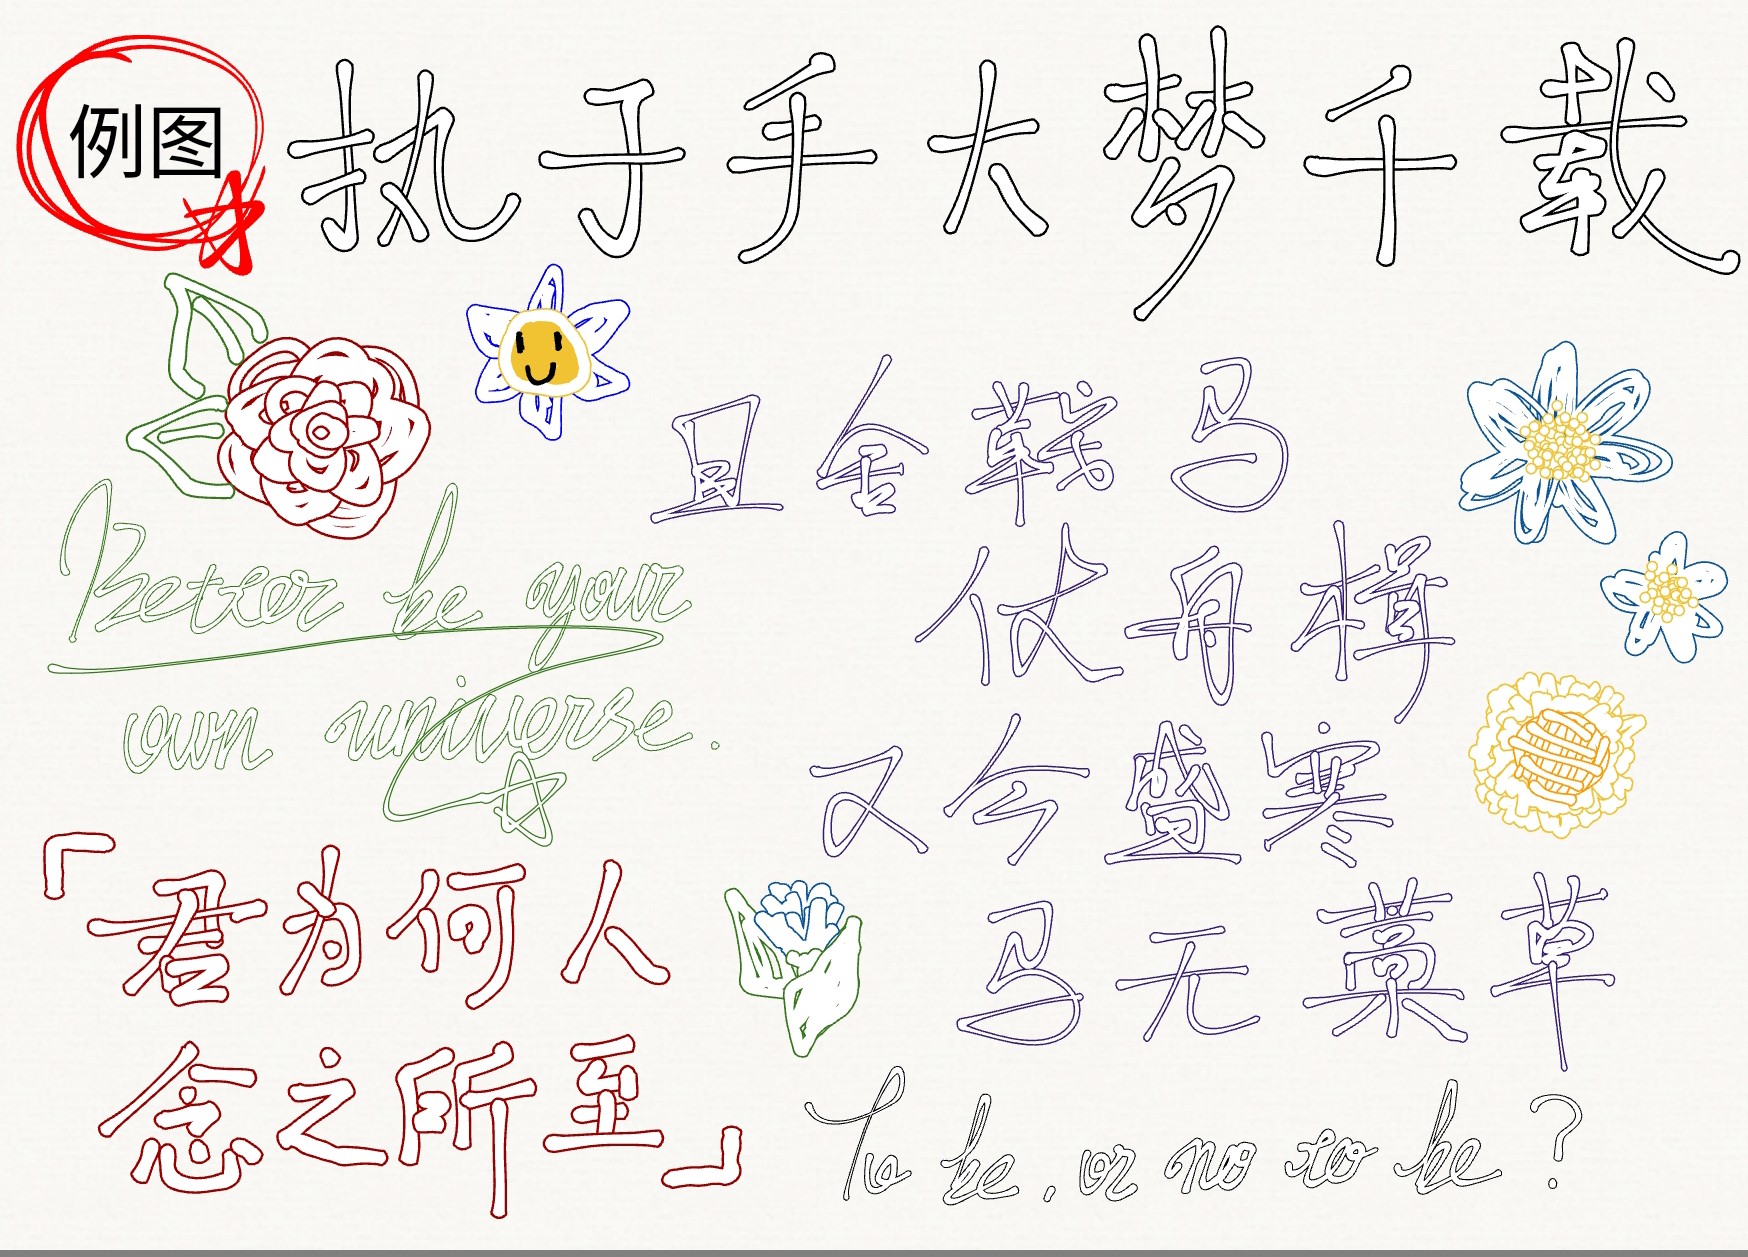 例图
执子手大梦千载
且舍戟马
仗舟楫
Better be your
own universe.
又今盛寒
「君为何人
马无藁草
念之所至」
To be, or no to be?